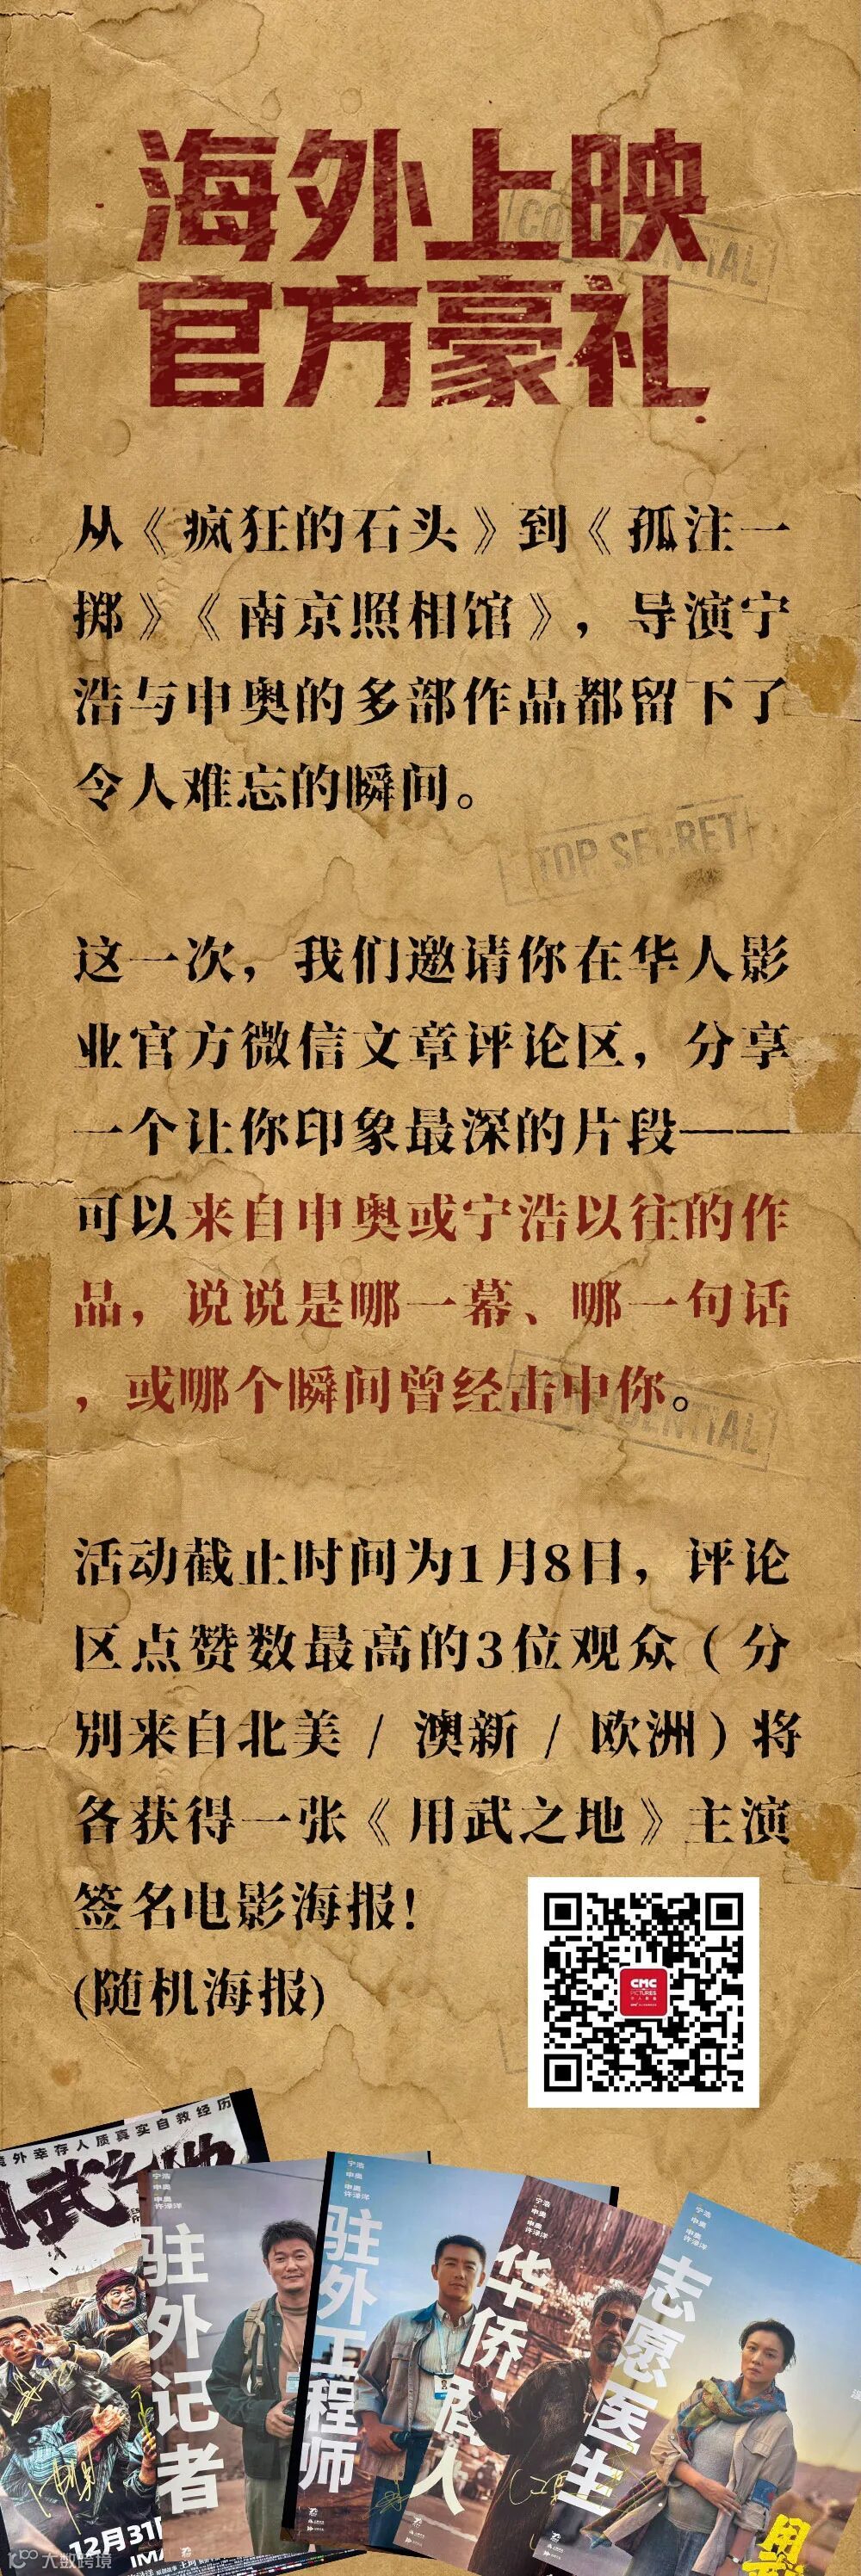 海外上映
官方豪礼
CONFIDENTIAL
从《疯狂的石头》到《孤注一
掷》《南京照相馆》，导演宁
浩与申奥的多部作品都留下了
令人难忘的瞬间。
TOP SECRET
这一次，我们邀请你在华人影
业官方微信文章评论区，分享
一个让你印象最深的片段——
可以来自申奥或宁浩以往的作
品，说说是哪一幕、哪一句话
，或哪个瞬间曾经击中你。
CONFIDENTIAL
活动截止时间为1月8日，评论
区点赞数最高的3位观众（分
别来自北美 / 澳新 / 欧洲）将
各获得一张《用武之地》主演
签名电影海报！
(随机海报)
CMC
PICTURES
外幸存人质真实自救经历
武之地
12月31
IMA
宁浩
申奥
申奥
许渌洋
驻外记者
宁浩
申奥
申奥
许渌洋
驻外工程师
宁浩
申奥
申奥
许渌洋
华侨商人
宁浩
申奥
申奥
许渌洋
志愿医生
用
大数跨境